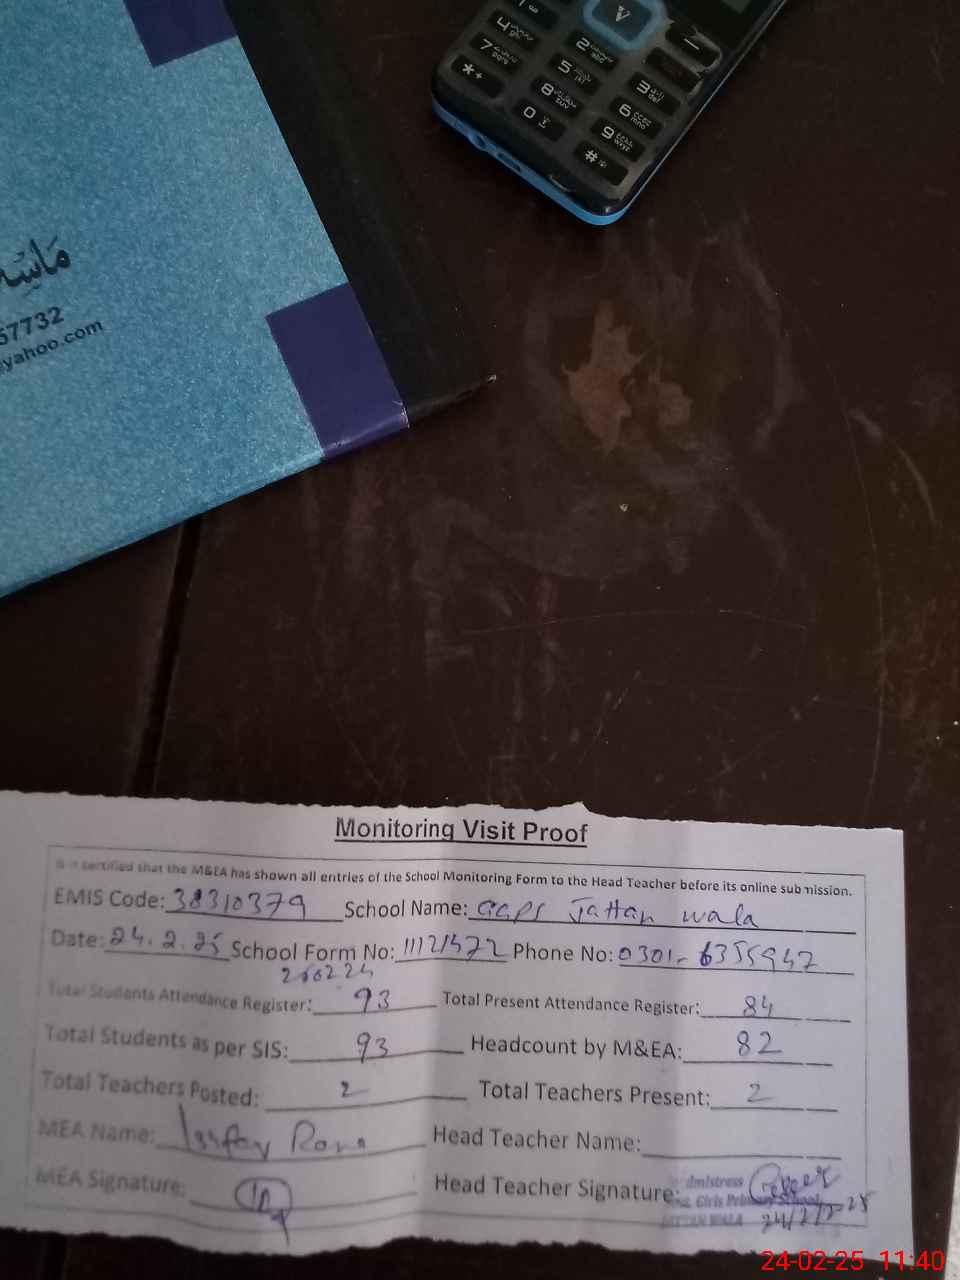 مَاسِٹ
57732
yahoo.com
1 ∞
4 ghi
7 pqrs
* +
2 abc
5 jkl
8 tuv
0
3 def
6 mno
9 wxyz
#
Monitoring Visit Proof
is certified that the M&EA has shown all entries of the School Monitoring Form to the Head Teacher before its online submission.
EMIS Code: 38310379 School Name: GGPS Jattan wala
Date: 24.2.25 School Form No: 11121572 Phone No: 0301-6355947
260224
Total Students Attendance Register: 93 Total Present Attendance Register: 84
Total Students as per SIS: 93 Headcount by M&EA: 82
Total Teachers Posted: 2 Total Teachers Present: 2
MEA Name: Rana Head Teacher Name:
MEA Signature: Head Teacher Signature:
dmistress
Girls Primary School
JATTAN WALA 24/2/2025
24-02-25 11:40